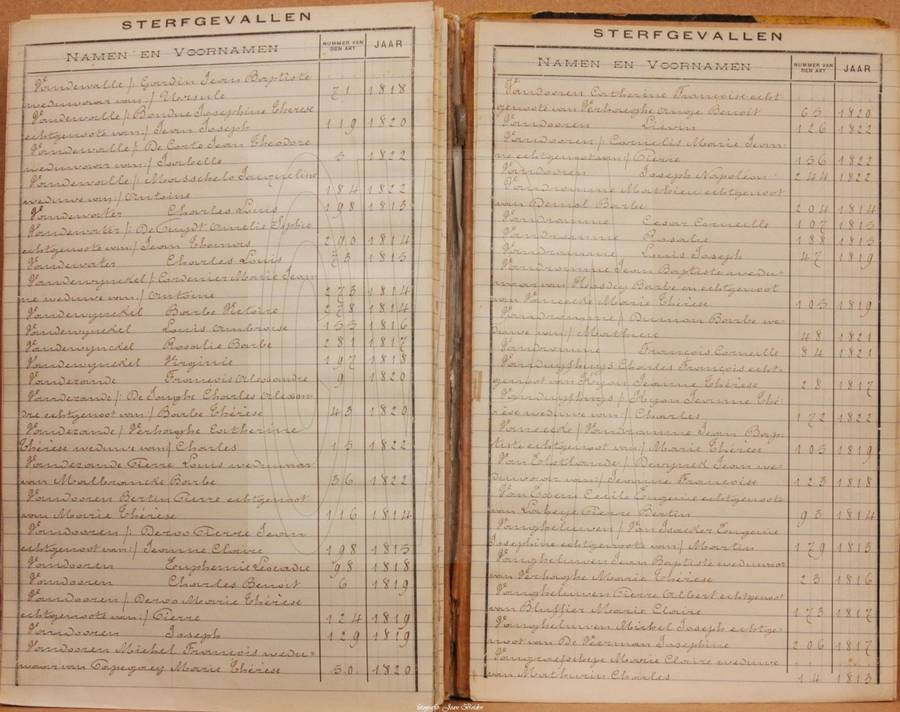 STERFGEVALLEN
NAMEN EN VOORNAMEN NUMMER VAN DEN AKT JAAR
Vandewalle / Gardin Jean Baptiste
weduwaar van / Ursule 71 1818
Vandewalle / Bondue Josephine Therese
echtgenoote van / Jean Joseph 119 1820
Vandewalle / De Carlo Jean Theodore
weduwaar van / Isabelle 5 1822
Vandewalle / Masschelo Jacqueline
weduwe van / Antoine 184 1822
Vandewater Charles Louis 198 1813
Vandewater / De Cuydt Amelie Sophie
echtgenoote van / Jean 290 1814
Vandewater Charles Louis 73 1815
Vandewynckel / Cardenier Marie Jean
ne weduwe van / Antoine 273 1814
Vandewynckel Barbe Victoire 278 1814
Vandewynckel Louis Ambroise 155 1816
Vandewynckel Rosalie Barbe 281 1817
Vandewynckel Virginie 197 1818
Vandezande François Alexandre 9 1820
Vandezande / De Jonghe Charles Alexan
dre echtgenoot van / Barbe Thérèse 43 1820
Vandezande / Verhaghe Catherine
Thérèse weduwe van / Charles 15 1822
Vandezande Pierre Louis weduwaar
van Malbrancke Barbe 36 1822
Vandooren Bertin Pierre echtgenoot
van Marie Thérèse 116 1814
Vandooren / Deroo Pierre Jean
echtgenoot van / Jeanne Claire 198 1815
Vandooren Euphemie Leocadie 98 1818
Vandooren Charles Benoit 6 1819
Vandooren / Deroo Marie Thérèse
echtgenoote van / Pierre 124 1819
Vandooren Joseph 129 1819
Vandooren Michel François wedu-
waar van Marie Thérèse 50 1820
STERFGEVALLEN
NAMEN EN VOORNAMEN NUMMER VAN DEN AKT JAAR
Vandooren Catherine Françoise echt
genoote van Verhaeghe Benoit 65 1820
Vandooren Lievin 126 1822
Vandooren / Cornelis Marie Jean
ne echtgenoot van / Pierre 156 1822
Vandooren Joseph Napoleon 244 1822
Vandromme Mathieu echtgenoot
van Demol Barbe 204 1814
Vandromme Cesar Corneille 107 1815
Vandromme Rosalie 188 1815
Vandromme Louis Joseph 47 1819
Vandromme Jean Baptiste wedu
waar van Barbe en echtgenoot
van Vaneecke Marie Thérèse 103 1819
Vandromme / Barbe we
duwe van / Mathieu 48 1821
Vandromme François Corneille 84 1821
Charles François echt
genoot van Jeanne Thérèse 28 1817
Jeanne Thé
rèse weduwe van / Charles 172 1822
Vaneecke / Vandromme Jean Bap
tiste echtgenoot van / Marie Thérèse 103 1819
Van Eslande / Jean we
duwaar van / Jeanne Françoise 123 1818
Cecile Eugenie echtgenoote
van Pierre Bertin 93 1814
Vangheluwen / Van Isacker Eugenie
Josephine echtgenoote van / Martin 179 1813
Vangheluwen Jean Baptiste weduwaar
van Verhaghe Marie Thérèse 23 1816
Vangheluwen Pierre Albert echtgenoot
van Bluffier Marie Claire 173 1817
Vangheluwen Michel Joseph echtge-
noot van De Veerman Josephine 206 1817
Vangraefschepe Marie Claire weduwe
van Mathurin Charles 14 1813